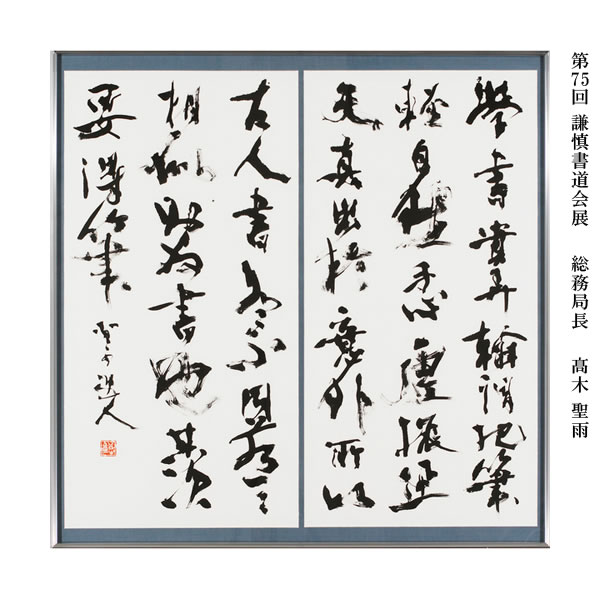 第75回 謙慎書道会展 総務局長 髙木 聖雨
學書貴弄翰謂把筆
輕自然手心虛振迅
天真出於意外所以
古人書各々不同若一々
相似則奴書也其次
要得筆 聖雨 人